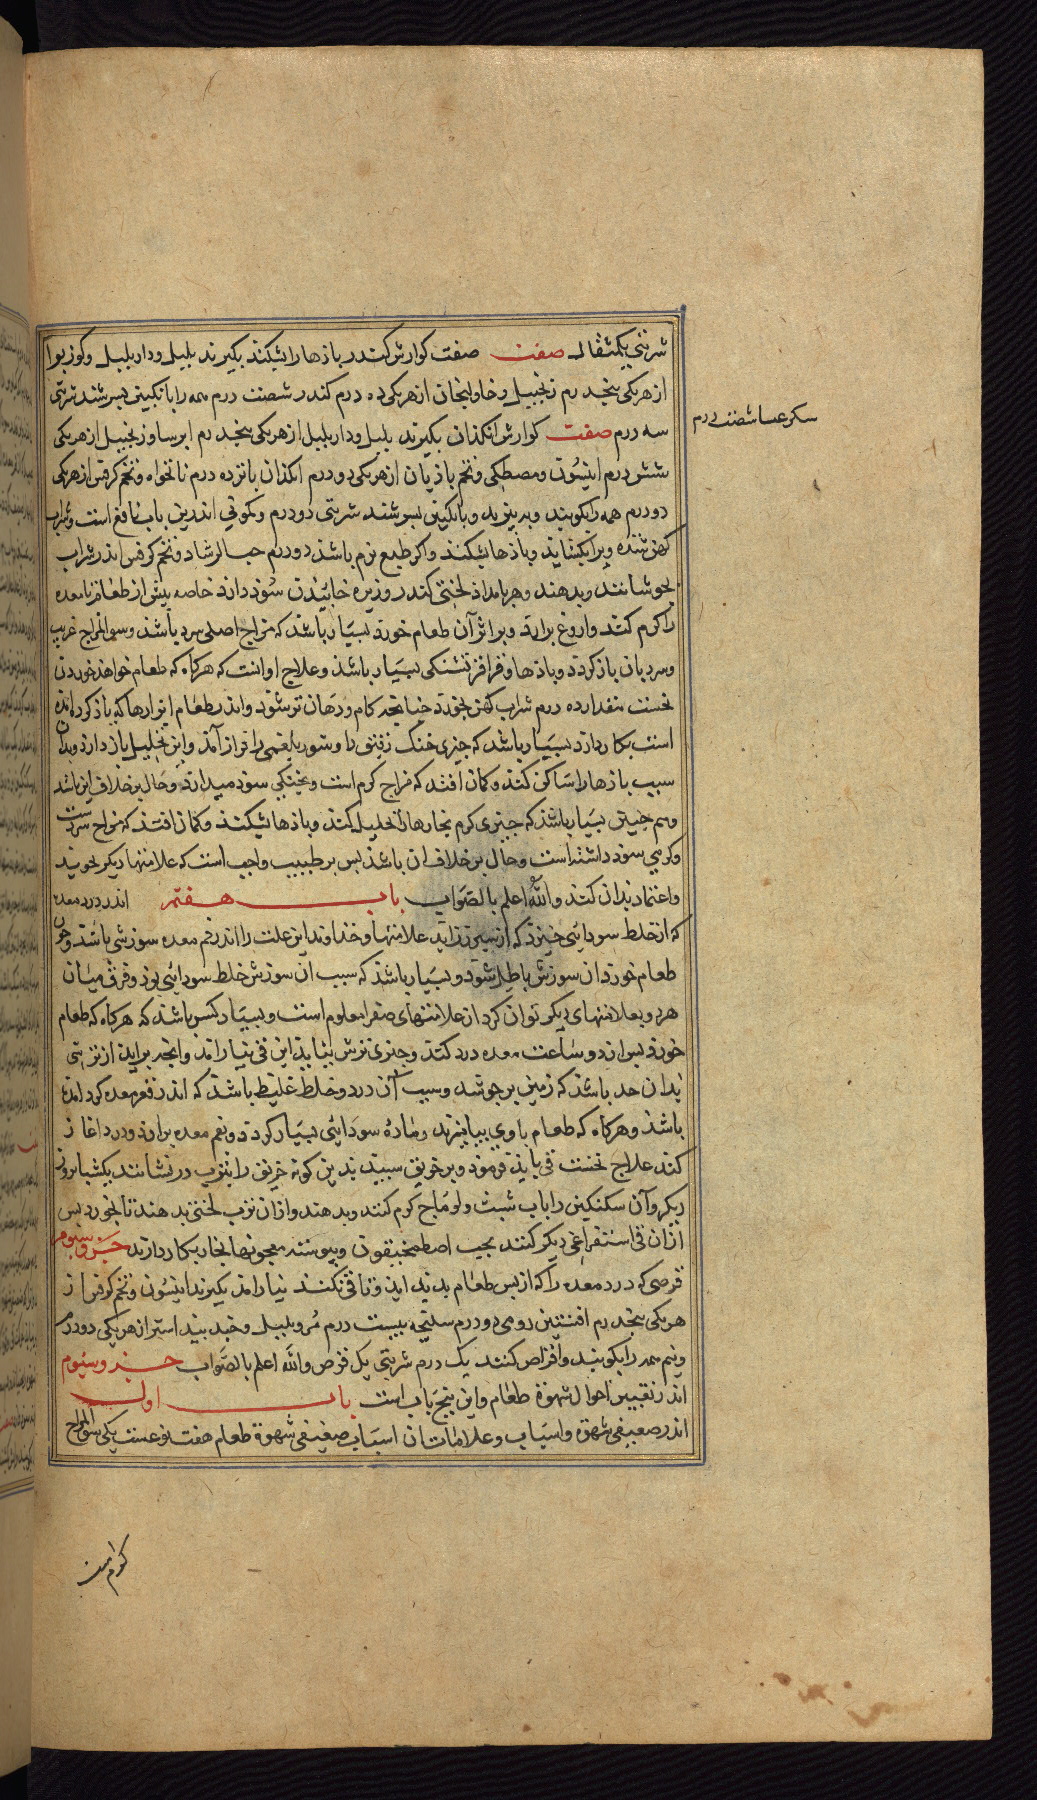 شربتی یکمثقال صفت صفت کوارش کندر باذها را بشکند بکیرند بلبل و داربلبل و کوزبوا
ازهریکی پنجدرم زنجبیل و خاولنجان ازهریکی ده درم کندر شصت درم همه را بانکبین بسرشند شربتی
سه درم صفت کوارش انکذان بکیرند بلبل و داربلبل ازهریکی پنجدرم ابرسا و زنجبیل ازهریکی
شش درم انیسون و مصطکی و تخم باذیان ازهریکی دو درم انکذان بانزده درم نانخواه و تخم کرفس ازهریکی
دو درم همه را بکوبند و ببیزند و بانکبین بسرشند شربتی دو درم و کمونی اندرین باب نافع است و شراب
کهن تشنه و برا بکشاید و باذها بشکند واکر طبع نرم باشذ دو درم حب الرشاد و تخم کرفس اندر شراب
بجوشانند و بدهند و هر بامداذ لختی کندر و زیره خائیذن سوذ دارد خاصه بیش از طعام تا معده
را کرم کند و اروغ برارد و براثر آن طعام خورد بسیار باشذ که مزاج اصلی سرد باشذ و سوء المزاج غریب
و سرد بان باز کردد و باذها و قراقر تشنکی بسیار باشذ و علاج او انست که هرکاه که طعام خواهذ خوردن
نخست مقدار ده درم شراب کهن بخورد جنانجه کام و دهان تر شوذ واندر طعام ابزارها که یاذ کرده امده
است بکار دارد بسیار باشذ که جیزی خنک رقیق را و شور بلغمی را فراز آمد و این تحلیل باز دارد و بدان
سبب باذها را ساکن کند و کمان افتد که مزاج کرم است و بخنکی سوذ میدارد و حال برخلاف این باشد
و هم جنین بسیار باشذ که جیزی کرم بخارها را تحلیل کند و باذها بشکند و کمان افتد که مزاج سردست
و کرمی سوذ داشته است و حال برخلاف ان باشذ بس بر طبیب واجب است که علامتها دیکر بجوید
واعتماد بدان کند والله اعلم بالصواب باب هفتم اندر درد معده
که از خلط سودائی خیزد که از سبرز زاید علامتها و خداوند این علت را اندر فم معده سوزشی باشد و جون
طعام خورد ان سوزش باطل شود و بسیار باشذ که سبب ان سوزش خلط سودائی بوذ و فرق میان
هردو بعلامتهای دیکر توان کرد از علامتهای صفرا معلوم است و بسیار کس باشذ که هرکاه که طعام
خورد بس از دو ساعت معده درد کند و جیزی ترش بیاید این قی نیارامد وانجه براید از ترشی
بدان حد باشذ که زمین برجوشد و سبب آن درد و خلط غلیظ باشذ که اندر قعر معده کرد امده
باشذ و هرکاه که طعام با وی بیامیزد ماده سودائی بسیار کردد و بفم معده براذ و درد اغاز
کند علاج نخست قی باید فرمود و بر خربق سبید بدین کونه خربق را بترب در نشانند یکشبانروز
دیکر و آن سکنکبین را باب شبت و لوماج کرم کنند و بدهند و ازان ترب لختی بدهند تا بخورد بس
ازان قی استفراغی دیکر کنند بحب اصطمخیقون و بیوسته معجونها بخار بکار دارند جزو سیوم
قرصی که درد معده را که از بس طعام بدید اید و تا قی نکنند نیارامد بکیرند انیسون و تخم کرفس از
هریکی پنجدرم افسنتین رومی دو درم سلیخه بیست درم مر و بلبل و جند بیدستر ازهریکی دو درم
و نیم همه را بکوبند و اقراص کنند یک درم شربتی یک قرص والله اعلم بالصواب جزو سیوم
اندر تغییر احوال شهوة طعام واین بنج باب است باب اول
اندر ضعیفی شهوة واسباب و علامات ان اسباب ضعیفی شهوة طعام هفت نوعست یکی سوء المزاج
سکر عسا شصت درم
کرم است